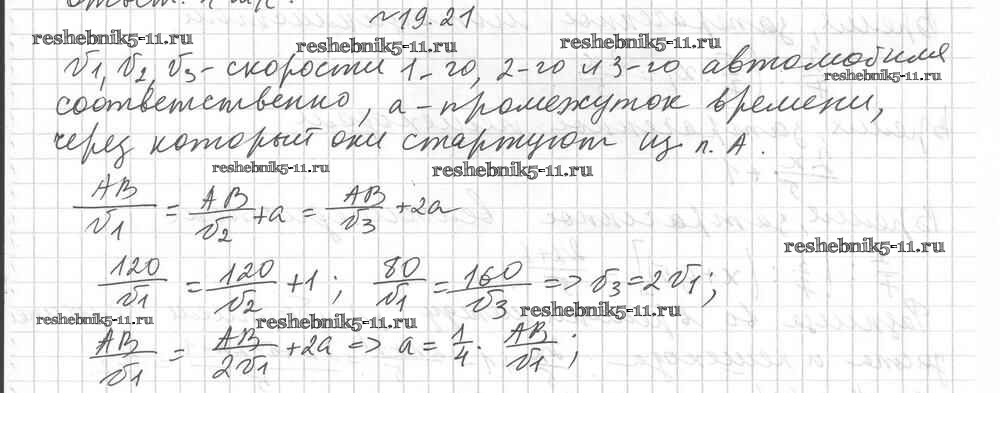 Ответ: 1
№19.21
reshebnik5-11.ru reshebnik5-11.ru reshebnik5-11.ru
v1, v2, v3 - скорости 1-го, 2-го и 3-го автомобиля
reshebnik5-11.ru
соответственно, а - промежуток времени,
через который они стартуют из п. А.
reshebnik5-11.ru reshebnik5-11.ru
AB/v1 = AB/v2 + a = AB/v3 + 2a
reshebnik5-11.ru
120/v1 = 120/v2 + 1; 80/v1 = 160/v3 => v3 = 2v1;
reshebnik5-11.ru reshebnik5-11.ru reshebnik5-11.ru
AB/v1 = AB/2v1 + 2a => a = 1/4 · AB/v1;
reshebnik5-11.ru reshebnik5-11.ru